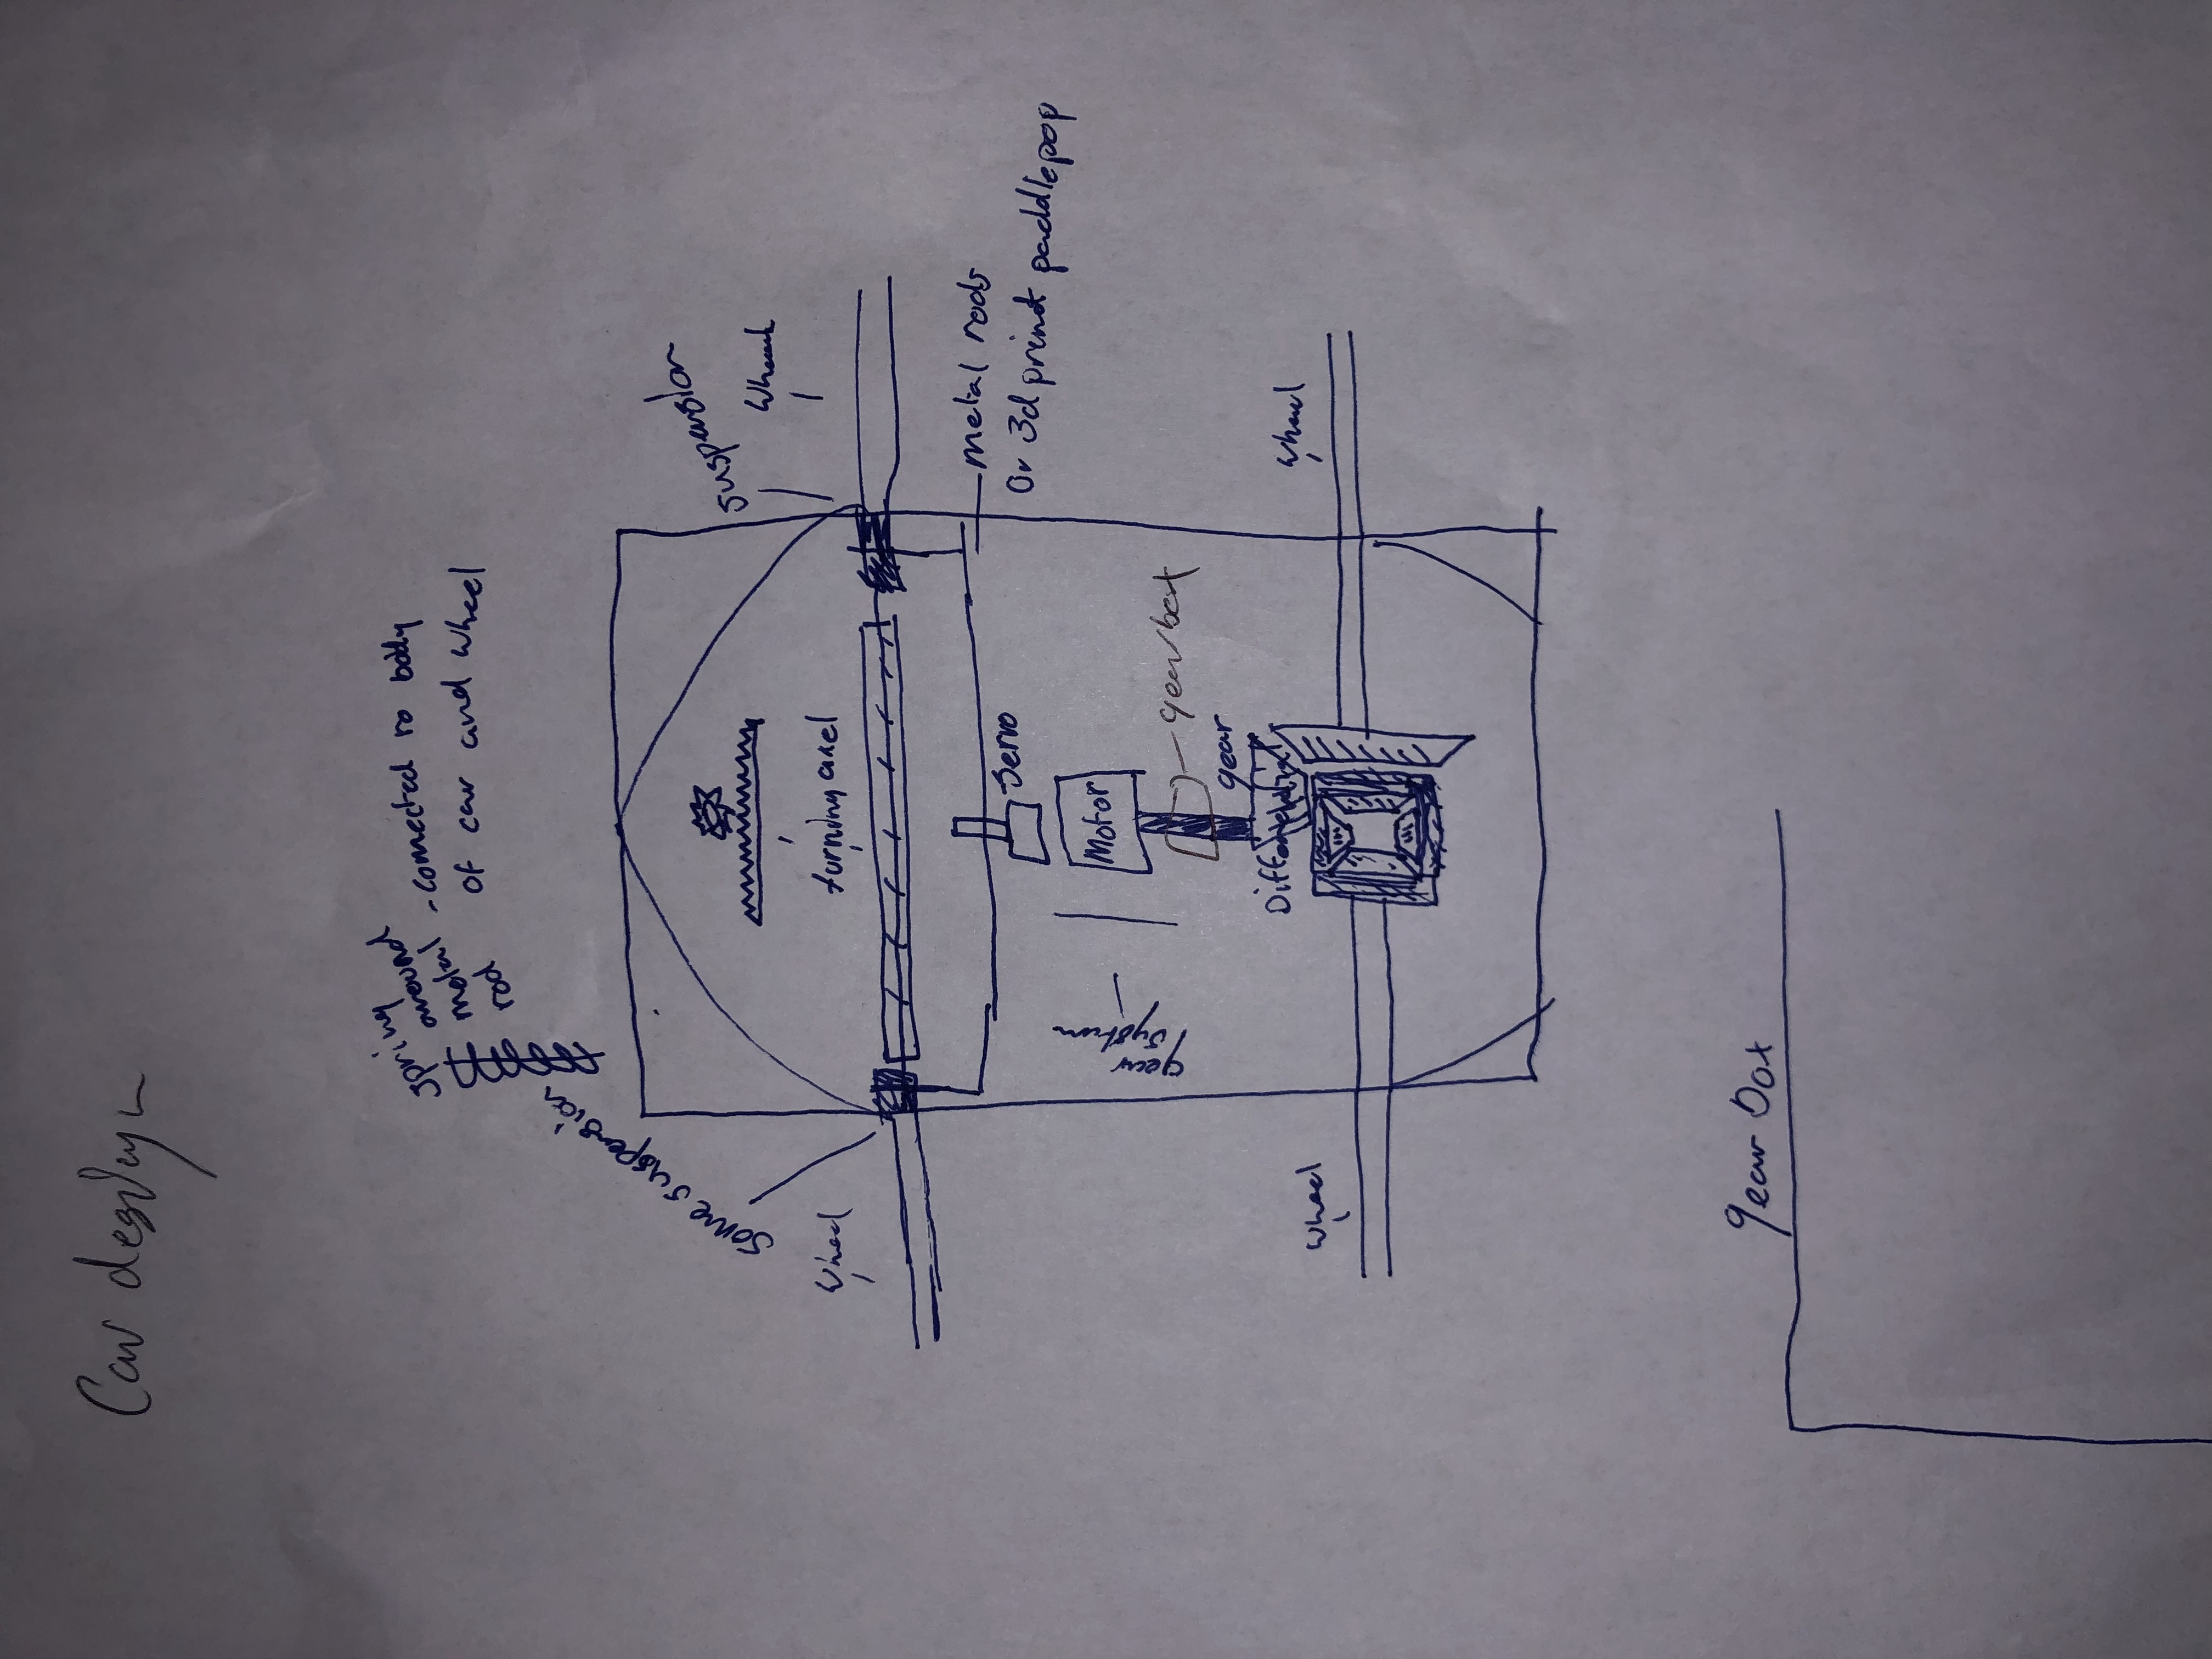 Car design
spring
around
metal
rod
-connected ro body
of car and wheel
Some suspension
suspension
wheel
wheel
turning axel
Servo
metal rods
Or 3d print paddlepop
Motor
gear
system
gearbox
gear
Differential
wheel
wheel
gear box